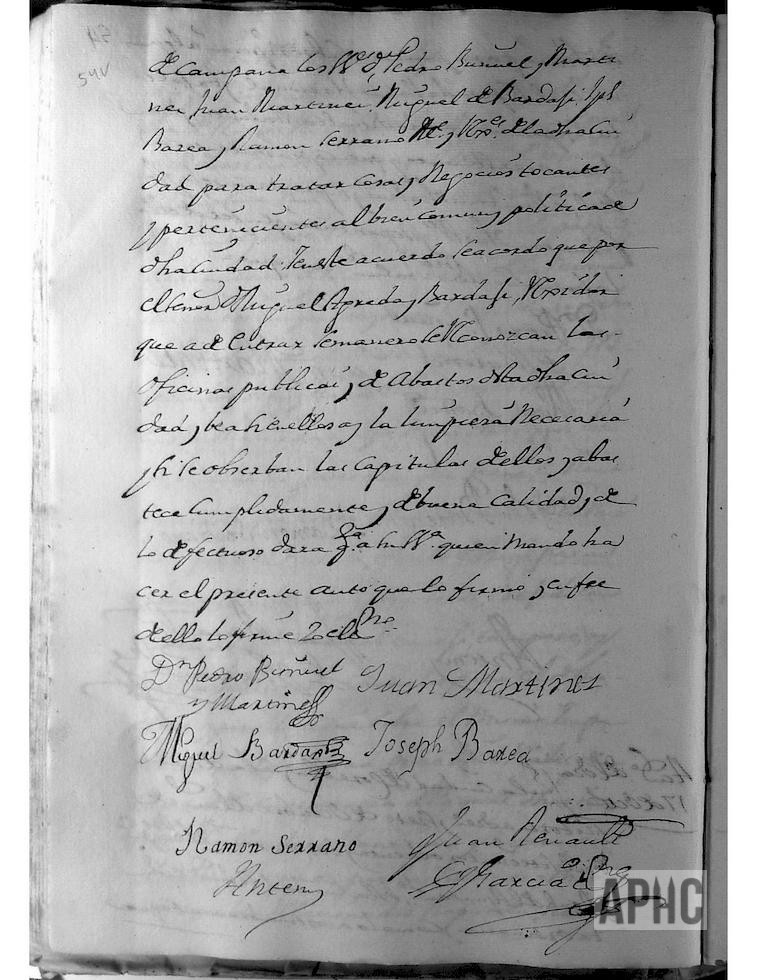 54V
de Campana los SS.es D.n Pedro Buñuel y Marti
nez Juan Martinez, Miguel de Bardaji, Jph
Barea y Ramon Serrano Al.e y Rx.es dela dha Ciu
dad para tratar cosas y Negocios tocantes
y pertenecientes al bien comun y politica de
dha Ciudad: Y en este acuerdo se acordo que por
el señor Miguel Agreda y Bardaji, Rexidor
que ade entrar semanero se Reconozcan las
oficinas publicas y de Abastos desta dha Ciu
dad y sea en ellos ay la limpieza Necesaria
y si se observan las Capitulas dellos y abas
tece cumplidamente y de buena Calidad y de
lo defectuoso dara q.ta a su S.a quien mando ha
cer el presente auto que lo firmo y en fee
dello lo firme Yo el ess.no
D.n Pedro Buñuel
y Martinez
Juan Martinez
Miguel Bardaxi
Joseph Barea
Ramon Serrano
Juan
Garcia
APHC